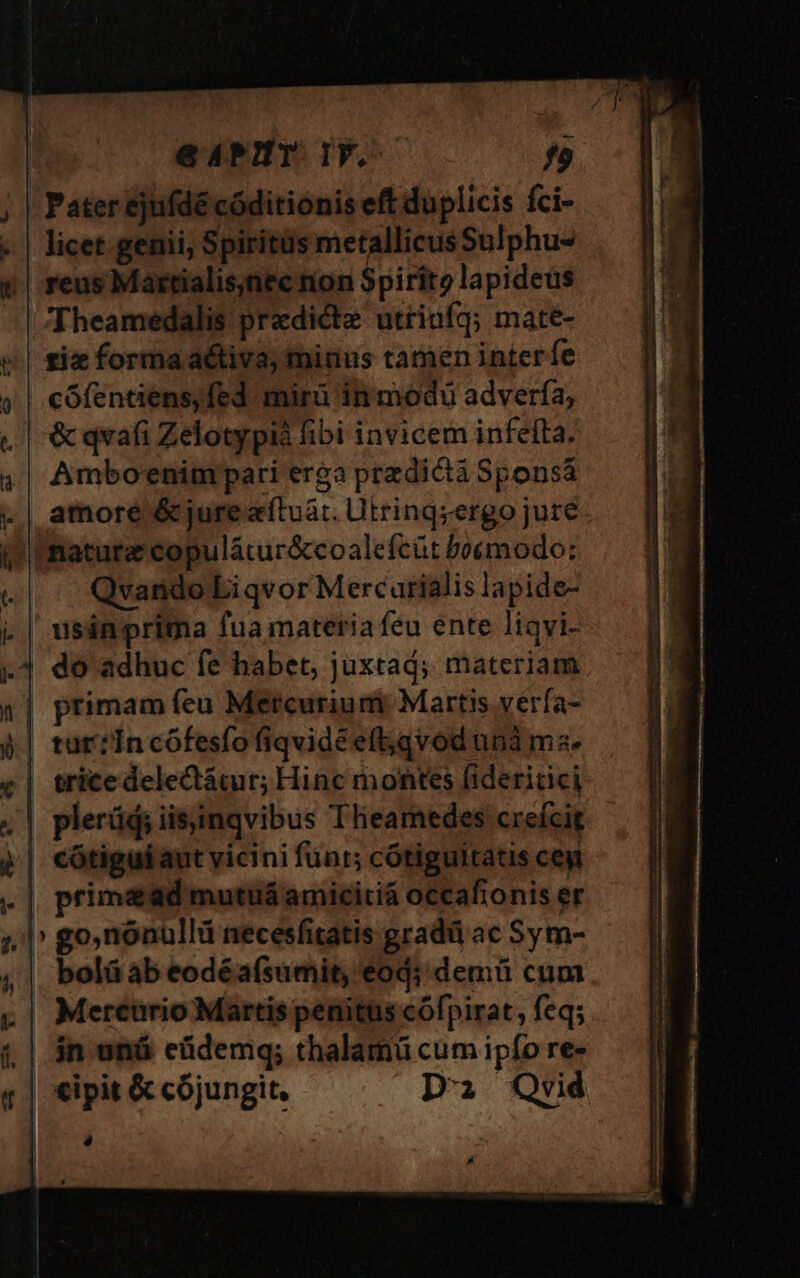 CAPUT IV. 59
Pater ejuſdē cōditionis eſt duplicis ſci-
licet genii, Spiritus metallicus Sulphu-
reus Martialis, nec non Spiritꝰ lapideus
Theamedalis prædictæ utriuſq; mate-
riæ forma activa, minus tamen inter ſe
cōſentiens, ſed mirū in modū adverſa,
& qvaſi Zelotypiâ ſibi invicem infeſta.
Ambo enim pari erga prædictā Sponsā
amore & jure æſtuāt. Utrinq; ergo jure
naturæ copulātur & coaleſcūt hocmodo:
Qvando Liqvor Mercurialis lapide-
us in prima ſua materia ſeu ente liqvi-
do adhuc ſe habet, juxtaq́; materiam
primam ſeu Mercurium Martis verſa-
tur: In cōfesſo ſiqvidē eſt, qvod unâ ma-
trice delectātur; Hinc montes ſideritici
plerūq; iis, in qvibus Theamedes creſcit
cōtigui aut vicini ſunt; cōtiguitatis ceu
primæ ad mutuā amicitiā occaſionis er
go, nōnullū necesſitatis gradū ac Sym-
bolū ab eodē aſsumit, eoq́; demū cum
Mercurio Martis penitus cōſpirat, ſeq;
in unū eūdemq; thalamū cum ipſo re-
cipit & cōjungit.
D 2 Qvid